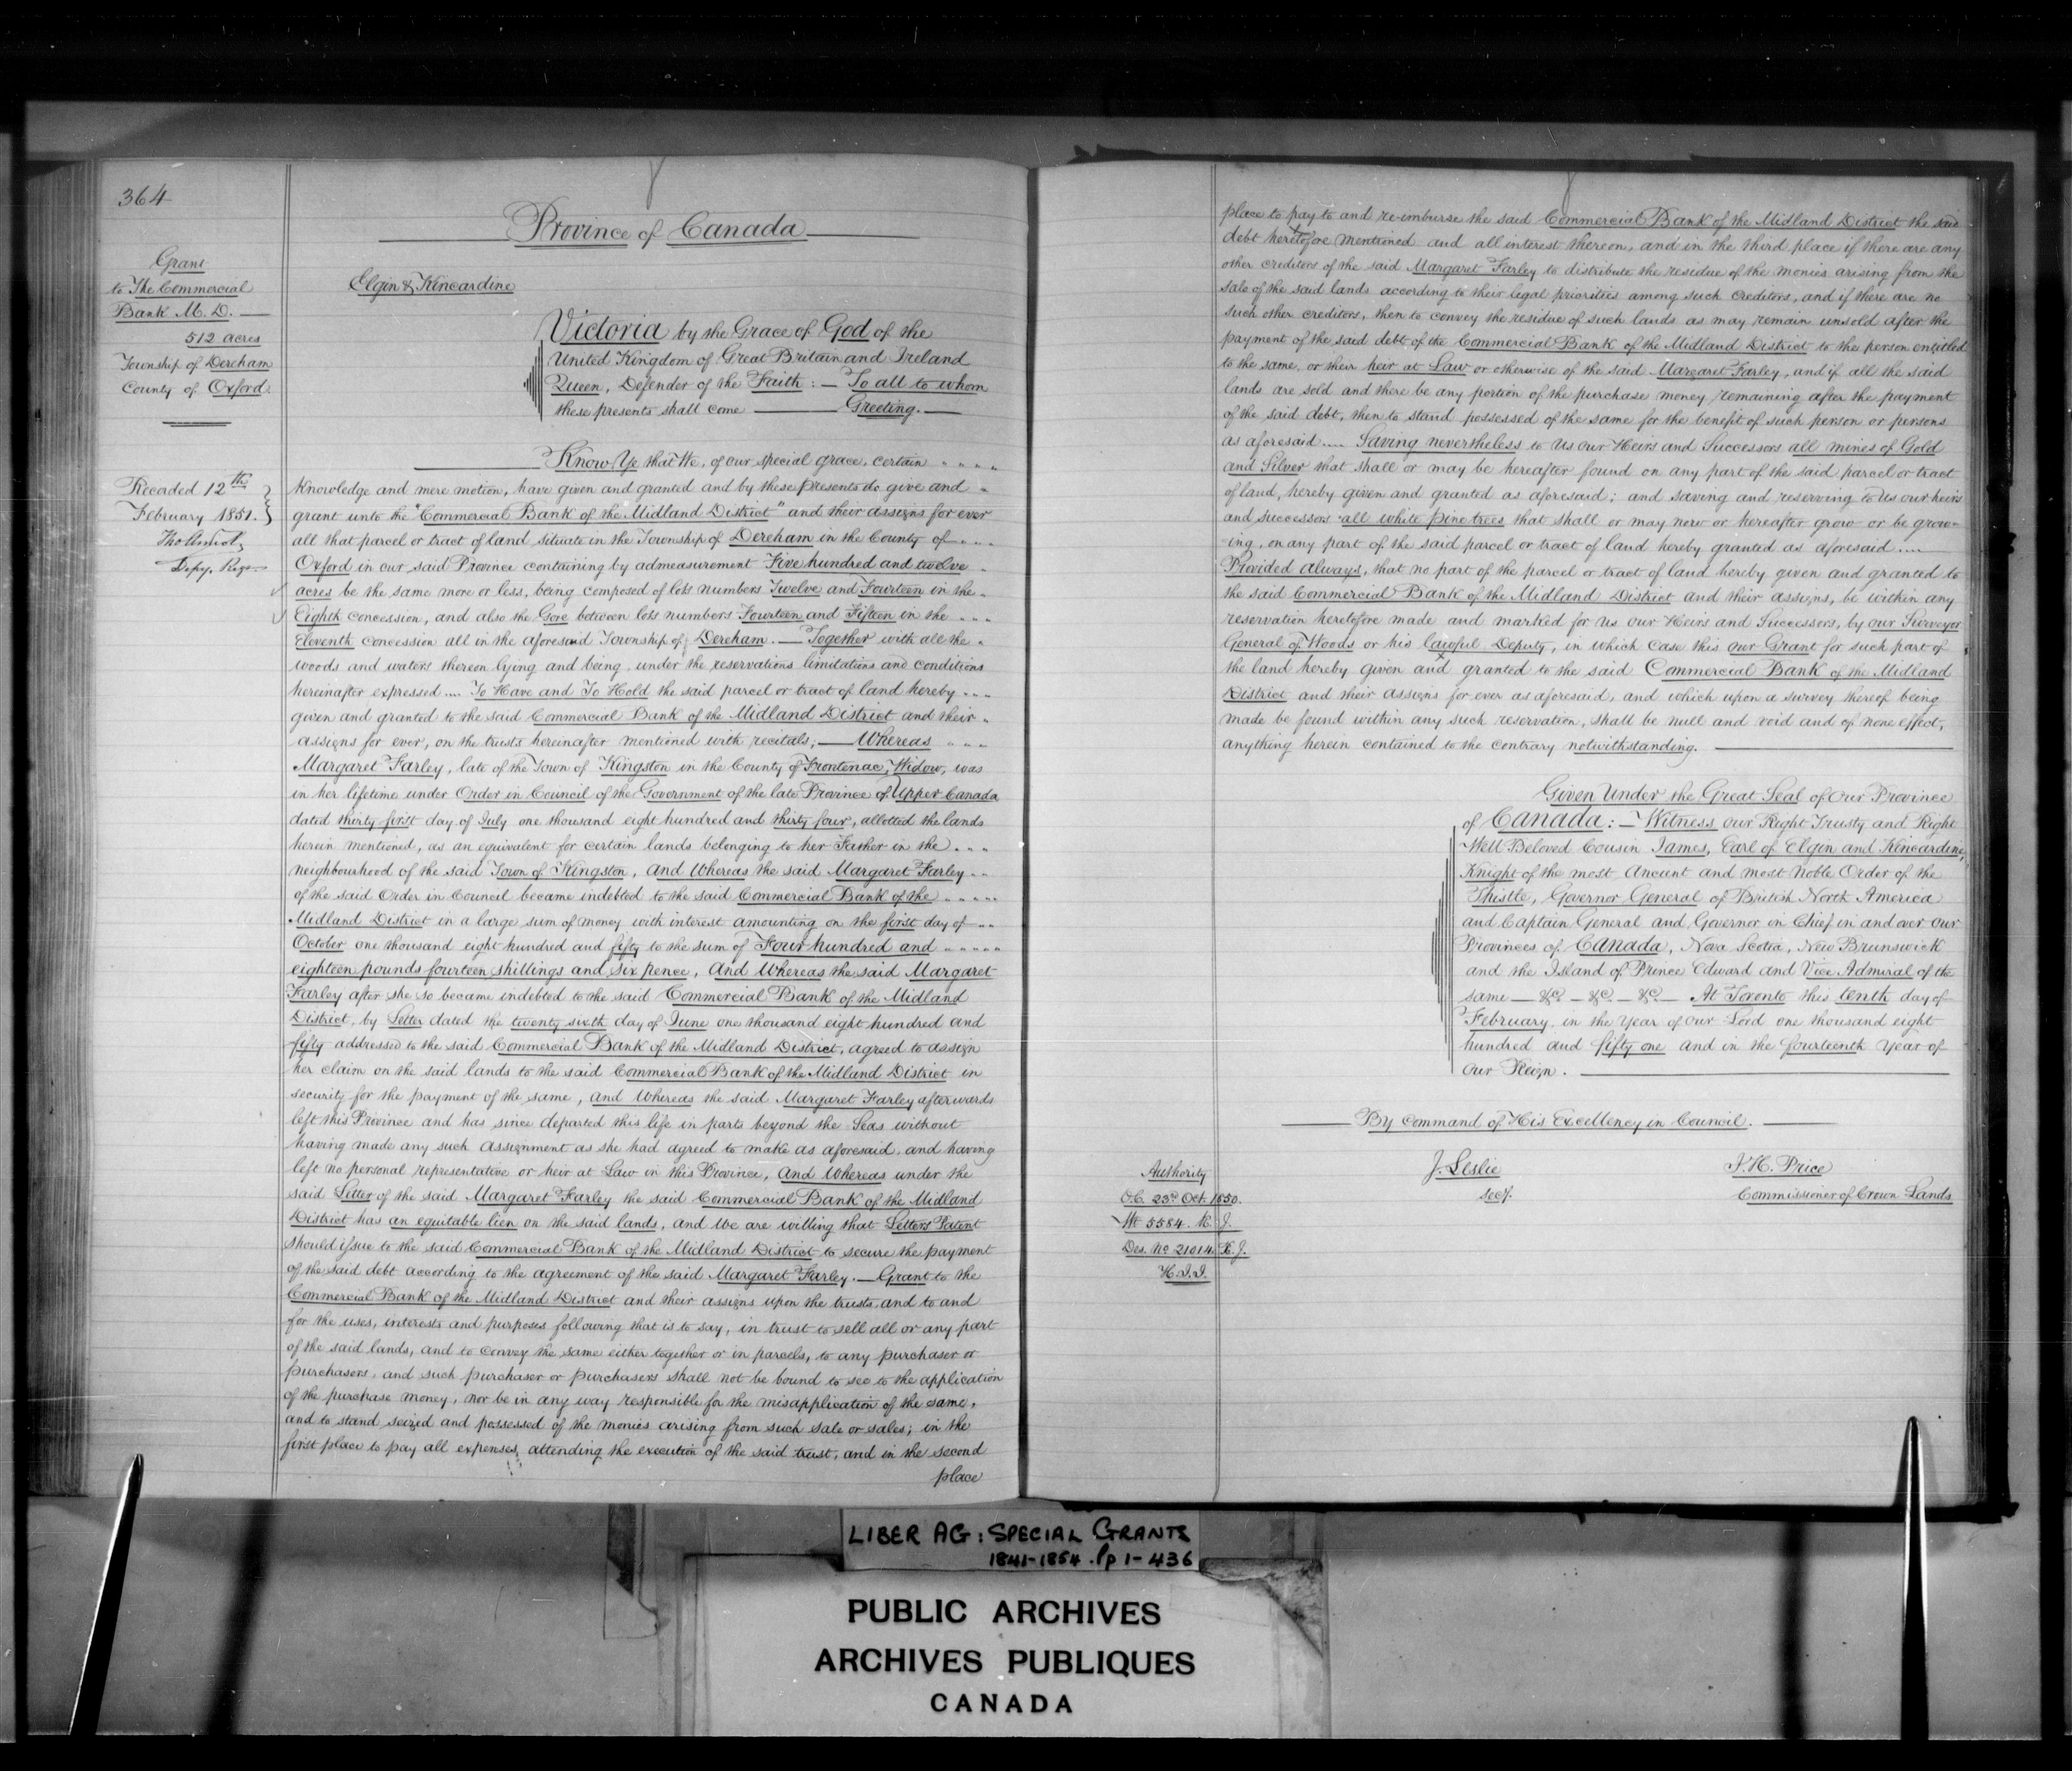 364
Grant
to The Commercial
Bank M. D.
512 acres
Township of Dereham
County of Oxford.
Recorded 12th
February 1851.
Depy. Regr
Province of Canada
Elgin & Kincardine
Victoria by the Grace of God of the
United Kingdom of Great Britain and Ireland
Queen, Defender of the Faith: — To all to whom
these presents shall come — Greeting. —
Know Ye that We, of our special grace, certain
knowledge and mere motion, have given and granted and by these presents do give and
grant unto the "Commercial Bank of the Midland District" and their assigns for ever
all that parcel or tract of land situate in the Township of Dereham in the County of
Oxford in our said Province containing by admeasurement Five hundred and twelve
acres be the same more or less, being composed of lots numbers Twelve and Fourteen in the
Eighth concession, and also the Gore between lots numbers Fourteen and Fifteen in the
Eleventh concession all in the aforesaid Township of Dereham. — Together with all the
woods and waters thereon lying and being under the reservations limitations and conditions
hereinafter expressed .... To Have and To Hold the said parcel or tract of land hereby
given and granted to the said Commercial Bank of the Midland District and their
assigns for ever, on the trusts hereinafter mentioned with recitals; — Whereas
Margaret Farley, late of the Town of Kingston in the County of Frontenac, Widow, was
in her lifetime under Order in Council of the Government of the late Province of Upper Canada
dated thirty first day of July one thousand eight hundred and thirty four, allotted the lands
herein mentioned, as an equivalent for certain lands belonging to her Father in the
neighbourhood of the said Town of Kingston, And Whereas the said Margaret Farley
of the said Order in Council became indebted to the said Commercial Bank of the
Midland District in a large sum of money with interest amounting on the first day of
October one thousand eight hundred and fifty to the sum of Four hundred and
eighteen pounds fourteen shillings and six pence, And Whereas the said Margaret
Farley after she so became indebted to the said Commercial Bank of the Midland
District, by Letter dated the twenty sixth day of June one thousand eight hundred and
fifty addressed to the said Commercial Bank of the Midland District, agreed to assign
her claim on the said lands to the said Commercial Bank of the Midland District in
security for the payment of the same, and Whereas the said Margaret Farley afterwards
left this Province and has since departed this life in parts beyond the Seas without
having made any such assignment as she had agreed to make as aforesaid, and having
left no personal representative or heir at Law in this Province, And Whereas under the
said Letter of the said Margaret Farley the said Commercial Bank of the Midland
District has an equitable lien on the said lands, and We are willing that Letters Patent
should issue to the said Commercial Bank of the Midland District to secure the payment
of the said debt according to the agreement of the said Margaret Farley. — Grant to the
Commercial Bank of the Midland District and their assigns upon the trusts and to and
for the uses, interests and purposes following that is to say, in trust to sell all or any part
of the said lands, and to convey the same either together or in parcels, to any purchaser or
purchasers, and such purchaser or purchasers shall not be bound to see to the application
of the purchase money, nor be in any way responsible for the misapplication of the same,
and to stand seized and possessed of the monies arising from such sale or sales; in the
first place to pay all expenses attending the execution of the said trust, and in the second
place
place to pay to and re-imburse the said Commercial Bank of the Midland District the said
debt heretofore mentioned and all interest thereon, and in the third place if there are any
other creditors of the said Margaret Farley to distribute the residue of the monies arising from the
sale of the said lands according to their legal priorities among such creditors, and if there are no
such other creditors, then to convey the residue of such lands as may remain unsold after the
payment of the said debt of the Commercial Bank of the Midland District to the person entitled
to the same, or their heir at Law or otherwise of the said Margaret Farley, and if all the said
lands are sold and there be any portion of the purchase money remaining after the payment
of the said debt, then to stand possessed of the same for the benefit of such person or persons
as aforesaid .... Saving nevertheless to Us our Heirs and Successors all mines of Gold
and Silver that shall or may be hereafter found on any part of the said parcel or tract
of land, hereby given and granted as aforesaid; and saving and reserving to Us our heirs
and successors all white pine trees that shall or may now or hereafter grow or be grow-
ing, on any part of the said parcel or tract of land hereby granted as aforesaid ....
Provided always, that no part of the parcel or tract of land hereby given and granted to
the said Commercial Bank of the Midland District and their assigns, be within any
reservation heretofore made and marked for Us our Heirs and Successors, by our Surveyor
General of Woods or his lawful Deputy, in which case this our Grant for such part of
the land hereby given and granted to the said Commercial Bank of the Midland
District and their assigns for ever as aforesaid, and which upon a survey thereof being
made be found within any such reservation, shall be null and void and of none effect,
anything herein contained to the contrary notwithstanding.
Given Under the Great Seal of Our Province
of Canada: — Witness our Right Trusty and Right
Well Beloved Cousin James, Earl of Elgin and Kincardine,
Knight of the most Ancient and most Noble Order of the
Thistle, Governor General of British North America
and Captain General and Governor in Chief in and over our
Provinces of Canada, Nova Scotia, New Brunswick
and the Island of Prince Edward and Vice Admiral of the
same — &c. — &c. — &c. — At Toronto this tenth day of
February in the Year of Our Lord one thousand eight
hundred and fifty one and in the fourteenth Year of
Our Reign.
By Command of His Excellency in Council.
J. Leslie
Secy.
J. H. Price
Commissioner of Crown Lands
Authority
O.C. 23rd Oct. 1850.
Wt 5584. K. J.
Des. No 21014 K. J.
LIBER AG: SPECIAL GRANTS
1841-1854. Pp 1-436
PUBLIC ARCHIVES
ARCHIVES PUBLIQUES
CANADA